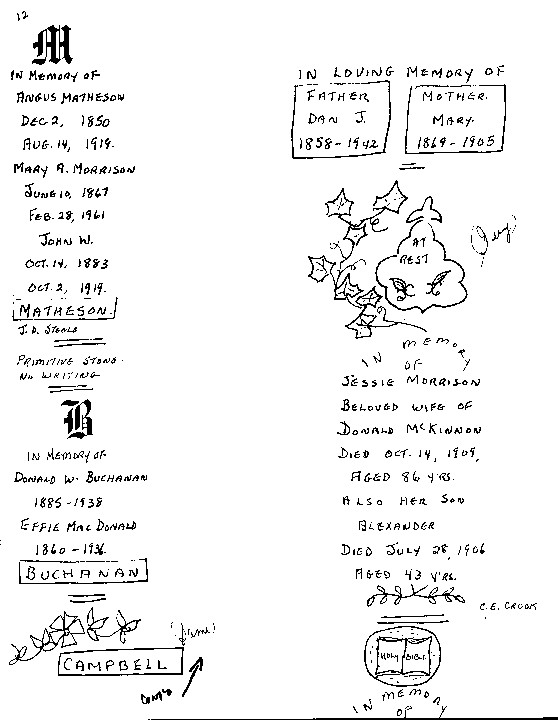 12
M
IN MEMORY OF
ANGUS MATHESON
DEC 2, 1850
AUG. 14, 1919.
MARY A. MORRISON
JUNE 10, 1867
FEB. 28, 1961
JOHN W.
OCT. 14, 1883
OCT. 2, 1919.
MATHESON
J. D. STEELE
PRIMITIVE STONE.
NO WRITING
B
IN MEMORY OF
DONALD W. BUCHANAN
1885-1938
EFFIE MACDONALD
1860-1936
BUCHANAN
CAMPBELL
IN LOVING MEMORY OF
FATHER
DAN J.
1858-1942
MOTHER.
MARY.
1869-1905
AT
REST
IN MEMORY
OF
JESSIE MORRISON
BELOVED WIFE OF
DONALD McKINNON
DIED OCT. 14, 1909,
AGED 86 YRS.
ALSO HER SON
ALEXANDER
DIED JULY 28, 1906
AGED 43 YRS.
C.E. CROOK
HOLY BIBLE
IN MEMORY
OF